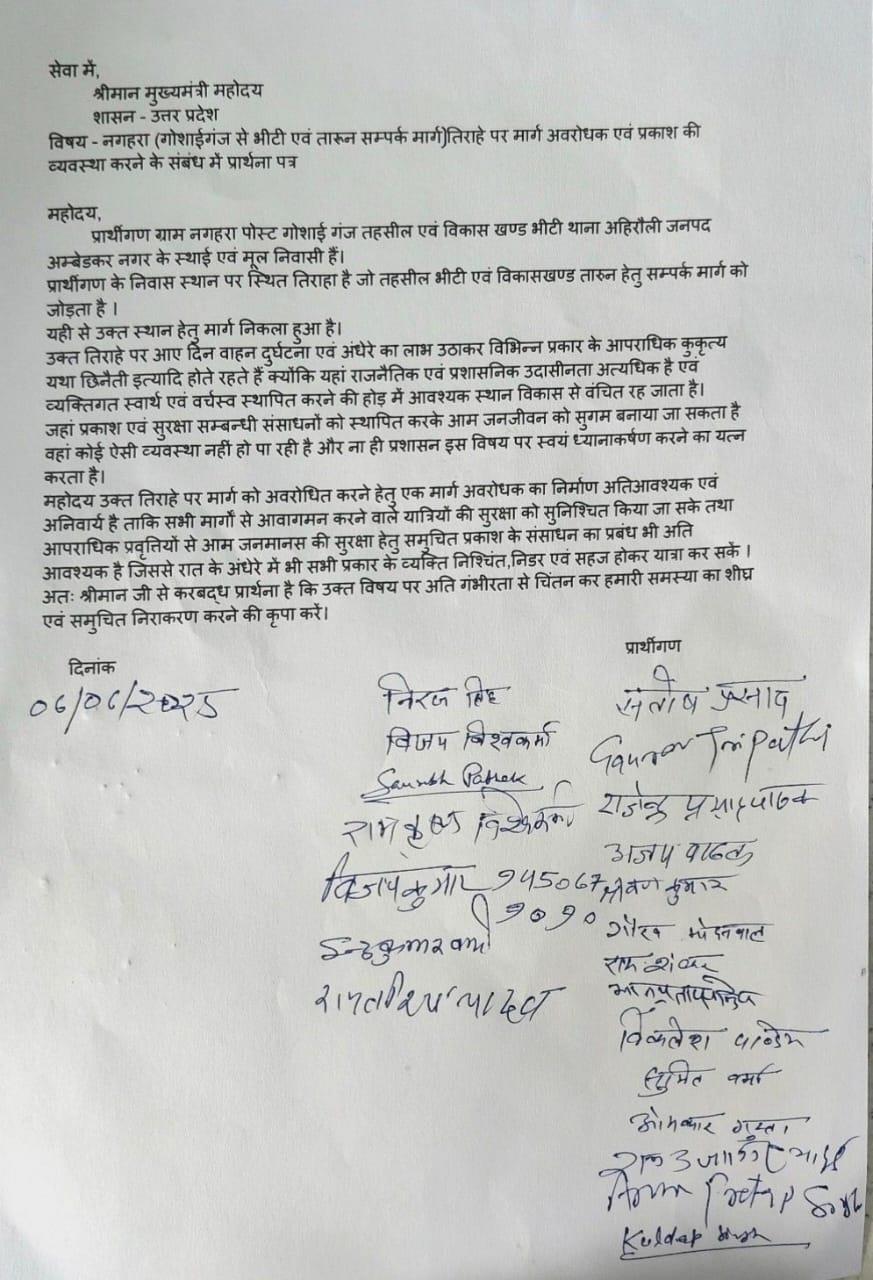 सेवा में,
श्रीमान मुख्यमंत्री महोदय
शासन - उत्तर प्रदेश
विषय - नगहरा (गोशाईगंज से भीटी एवं तारून सम्पर्क मार्ग)तिराहे पर मार्ग अवरोधक एवं प्रकाश की
व्यवस्था करने के संबंध में प्रार्थना पत्र
महोदय,
प्रार्थीगण ग्राम नगहरा पोस्ट गोशाई गंज तहसील एवं विकास खण्ड भीटी थाना अहिरौली जनपद
अम्बेडकर नगर के स्थाई एवं मूल निवासी हैं।
प्रार्थीगण के निवास स्थान पर स्थित तिराहा है जो तहसील भीटी एवं विकासखण्ड तारुन हेतु सम्पर्क मार्ग को
जोड़ता है ।
यही से उक्त स्थान हेतु मार्ग निकला हुआ है।
उक्त तिराहे पर आए दिन वाहन दुर्घटना एवं अंधेरे का लाभ उठाकर विभिन्न प्रकार के आपराधिक कुकृत्य
यथा छिनैती इत्यादि होते रहते हैं क्योंकि यहां राजनैतिक एवं प्रशासनिक उदासीनता अत्यधिक है एवं
व्यक्तिगत स्वार्थ एवं वर्चस्व स्थापित करने की होड़ में आवश्यक स्थान विकास से वंचित रह जाता है।
जहां प्रकाश एवं सुरक्षा सम्बन्धी संसाधनों को स्थापित करके आम जनजीवन को सुगम बनाया जा सकता है
वहां कोई ऐसी व्यवस्था नहीं हो पा रही है और ना ही प्रशासन इस विषय पर स्वयं ध्यानाकर्षण करने का यत्न
करता है।
महोदय उक्त तिराहे पर मार्ग को अवरोधित करने हेतु एक मार्ग अवरोधक का निर्माण अतिआवश्यक एवं
अनिवार्य है ताकि सभी मार्गों से आवागमन करने वाले यात्रियों की सुरक्षा को सुनिश्चित किया जा सके तथा
आपराधिक प्रवृत्तियों से आम जनमानस की सुरक्षा हेतु समुचित प्रकाश के संसाधन का प्रबंध भी अति
आवश्यक है जिससे रात के अंधेरे में भी सभी प्रकार के व्यक्ति निश्चिंत,निडर एवं सहज होकर यात्रा कर सकें ।
अतः श्रीमान जी से करबद्ध प्रार्थना है कि उक्त विषय पर अति गंभीरता से चिंतन कर हमारी समस्या का शीघ्र
एवं समुचित निराकरण करने की कृपा करें।
प्रार्थीगण
दिनांक
06/06/2025
निरज सिंह
संतोष प्रसाद
विजय विश्वकर्मा
Gaurav Tripathi
Saurabh Pathak
राम कृष्ण विश्वकर्मा
राजेन्द्र प्रसाद पाठक
अजय पाठक
विजय कुमार
श्रवण कुमार
गौरव मोदनवाल
राम शंकर
रामतीरथ यादव
विमलेश पाण्डेय
सुमित वर्मा
ओमकार गुप्ता
Pratap Singh
Kuldeep